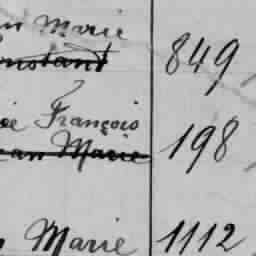 Marie
Constant 849
François
Jean Marie 198
Marie 1112